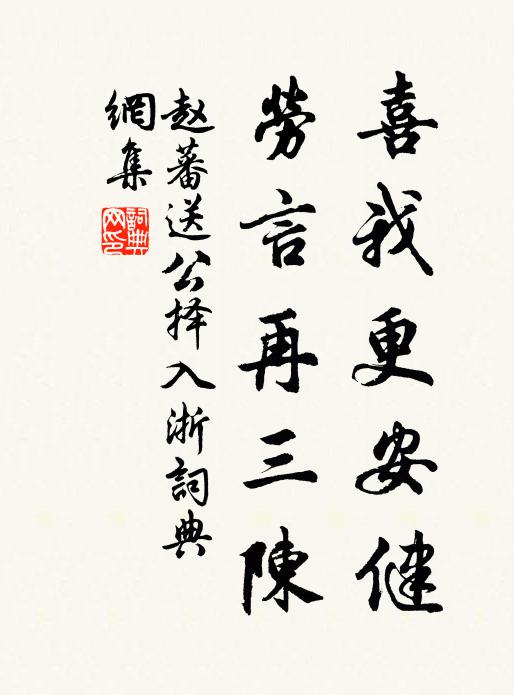 喜我更安健
勞言再三陳
赵蕃送公择入浙詞典
網集
詞典
网印